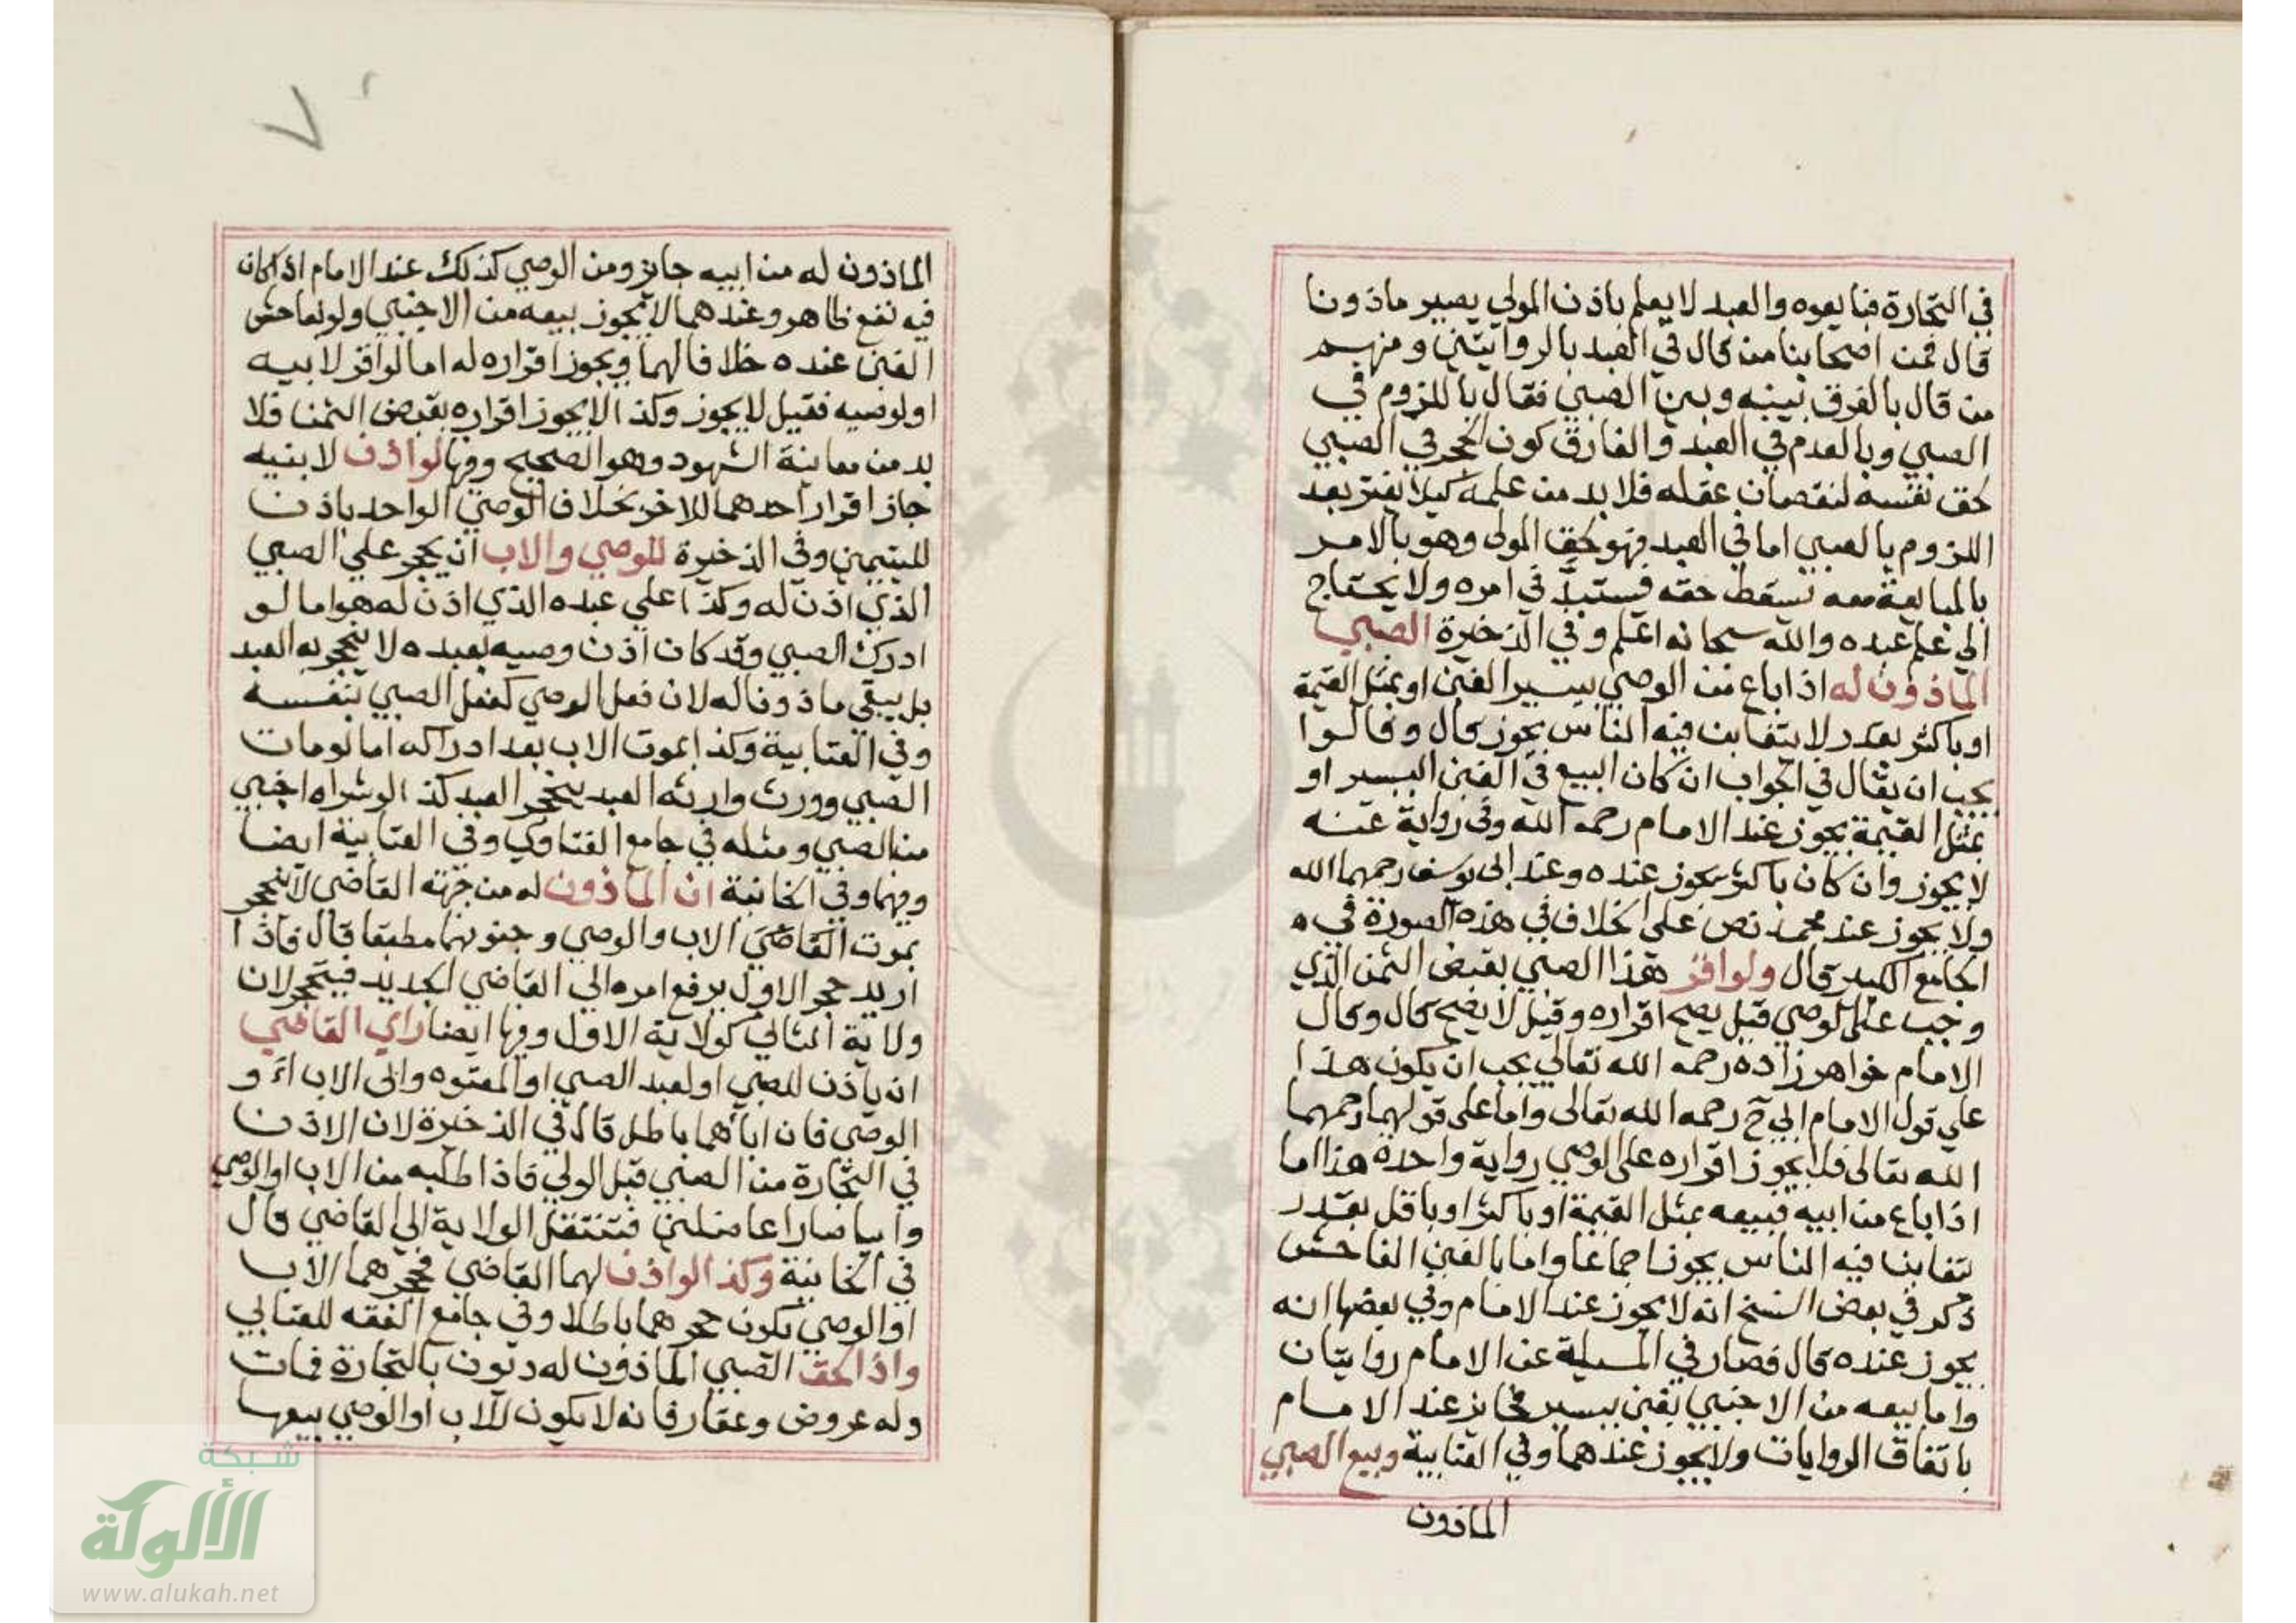 في التجارة فبايعوه والعبد لا يعلم باذن المولى يصير ماذونا
قال فمن اصحابنا من قال في العبد بالروايتين ومنهم
من قال بالفرق بينه وبين الصبي فقال باللزوم في
الصبي وبالعدم في العبد والفارق كون الحجر في الصبي
لحق نفسه لنقصان عقله فلا بد من علمه كيلا يفتر بعد
اللزوم بالصبي اما في العبد فهو لحق المولى وهو بالامر
بالمبايعة معه تسقط حقه فيستبد في امره ولا يحتاج
الى علم عبده والله سبحانه اعلم وفي الذخيرة الصبي
الماذون له اذا باع من الوصي بيسير الغبن او بمثل القيمة
او باكثر بقدر لا يتغابن فيه الناس يجوز بحال وقالوا
يجب ان يقال في الجواب ان كان البيع في الغبن اليسير او
بمثل القيمة يجوز عند الامام رحمه الله وفي رواية عنه
لا يجوز وان كان باكثر يجوز عنده وعند ابي يوسف رحمهما الله
ولا يجوز عند محمد نص على الخلاف في هذه الصورة في
الجامع الكبير قال ولو اقر هذا الصبي بقبض الثمن الذي
وجب على الوصي قيل يصح اقراره وقيل لا يصح بحال وكال
الامام خواهر زاده رحمه الله تعالى يجب ان يكون هذا
علي قول الامام ابي ح رحمه الله تعالى واما على قولهما رحمهما
الله تعالى فلا يجوز اقراره على الوصي رواية واحدة هذا اما
اذا باع من ابيه فبيعه بمثل القيمة او باكثر او باقل بقدر
يتغابن فيه الناس يجوز اجماعا واما بالغبن الفاحش
ذكر في بعض النسخ انه لا يجوز عند الامام وفي بعضها انه
يجوز عنده قال فصار في المسيلة عن الامام روايتان
واما بيعه من الاجنبي بغبن بيسير فجايز عند الامام
باتفاق الروايات ولا يجوز عندهما وفي العتابية وبيع الصبي
الماذون
الماذون له من ابيه جايز ومن الوصي كذلك عند الامام اذا كان
فيه نفع ظاهر وعندهما لا يجوز بيعه من الاجنبي ولو بفاحش
الغبن عنده خلافا لهما ويجوز اقراره له اما لو اقر لابيه
او لوصيه فقيل لا يجوز وكذا لا يجوز اقراره بقبض الثمن فلا
بد من معاينة الشهود وهو الصحيح وفيها لو اذن لابنيه
جاز اقرار احدهما للاخر بخلاف الوصي الواحد باذن
لليتيمين وفي الذخيرة للوصي والاب ان يحجر علي الصبي
الذي اذن له وكذا علي عبده الذي اذن له هو اما لو
ادرك الصبي وقد كان اذن وصيه بعبده لا ينحجر به العبد
بل يبقي ماذونا له لان فعل الوصي كفعل الصبي بنفسه
وفي العتابية وكذا بموت الاب بعد ادراكه اما لو مات
الصبي وورث وارثه العبد ينحجر العبد كذا لو شراه اجنبي
من الصبي ومثله في جامع الفتاوي وفي العتابية ايضا
وفيها وفي الخانية ان الماذون له من جهة القاضي لا ينحجر
بموت القاضي الاب والوصي وجنونهما مطبقا قال فاذا
اريد حجر الاول يرفع امره الي القاضي الجديد فيحجر لان
ولاية الثاني كولاية الاول وفيها ايضا راي القاضي
ان ياذن للصبي او لعبد الصبي او المعتوه وابى الاب او
الوصي فان اباءهما باطل قال في الذخيرة لان الاذن
في التجارة من الصبي قبل الولي فاذا طلبه من الاب او الوصي
وابيا صارا عاضلين فتنتقل الولاية الي القاضي قال
في الخانية وكذا لو اذن لهما القاضي فحجرهما الاب
او الوصي يكون حجرهما باطلا وفي جامع الفقه للعتابي
واذا لحق الصبي الماذون له ديون بالتجارة فمات
وله عروض وعقار فانه لا يكون للاب او الوصي بيعها
شبكة
الألوكة
www.alukah.net